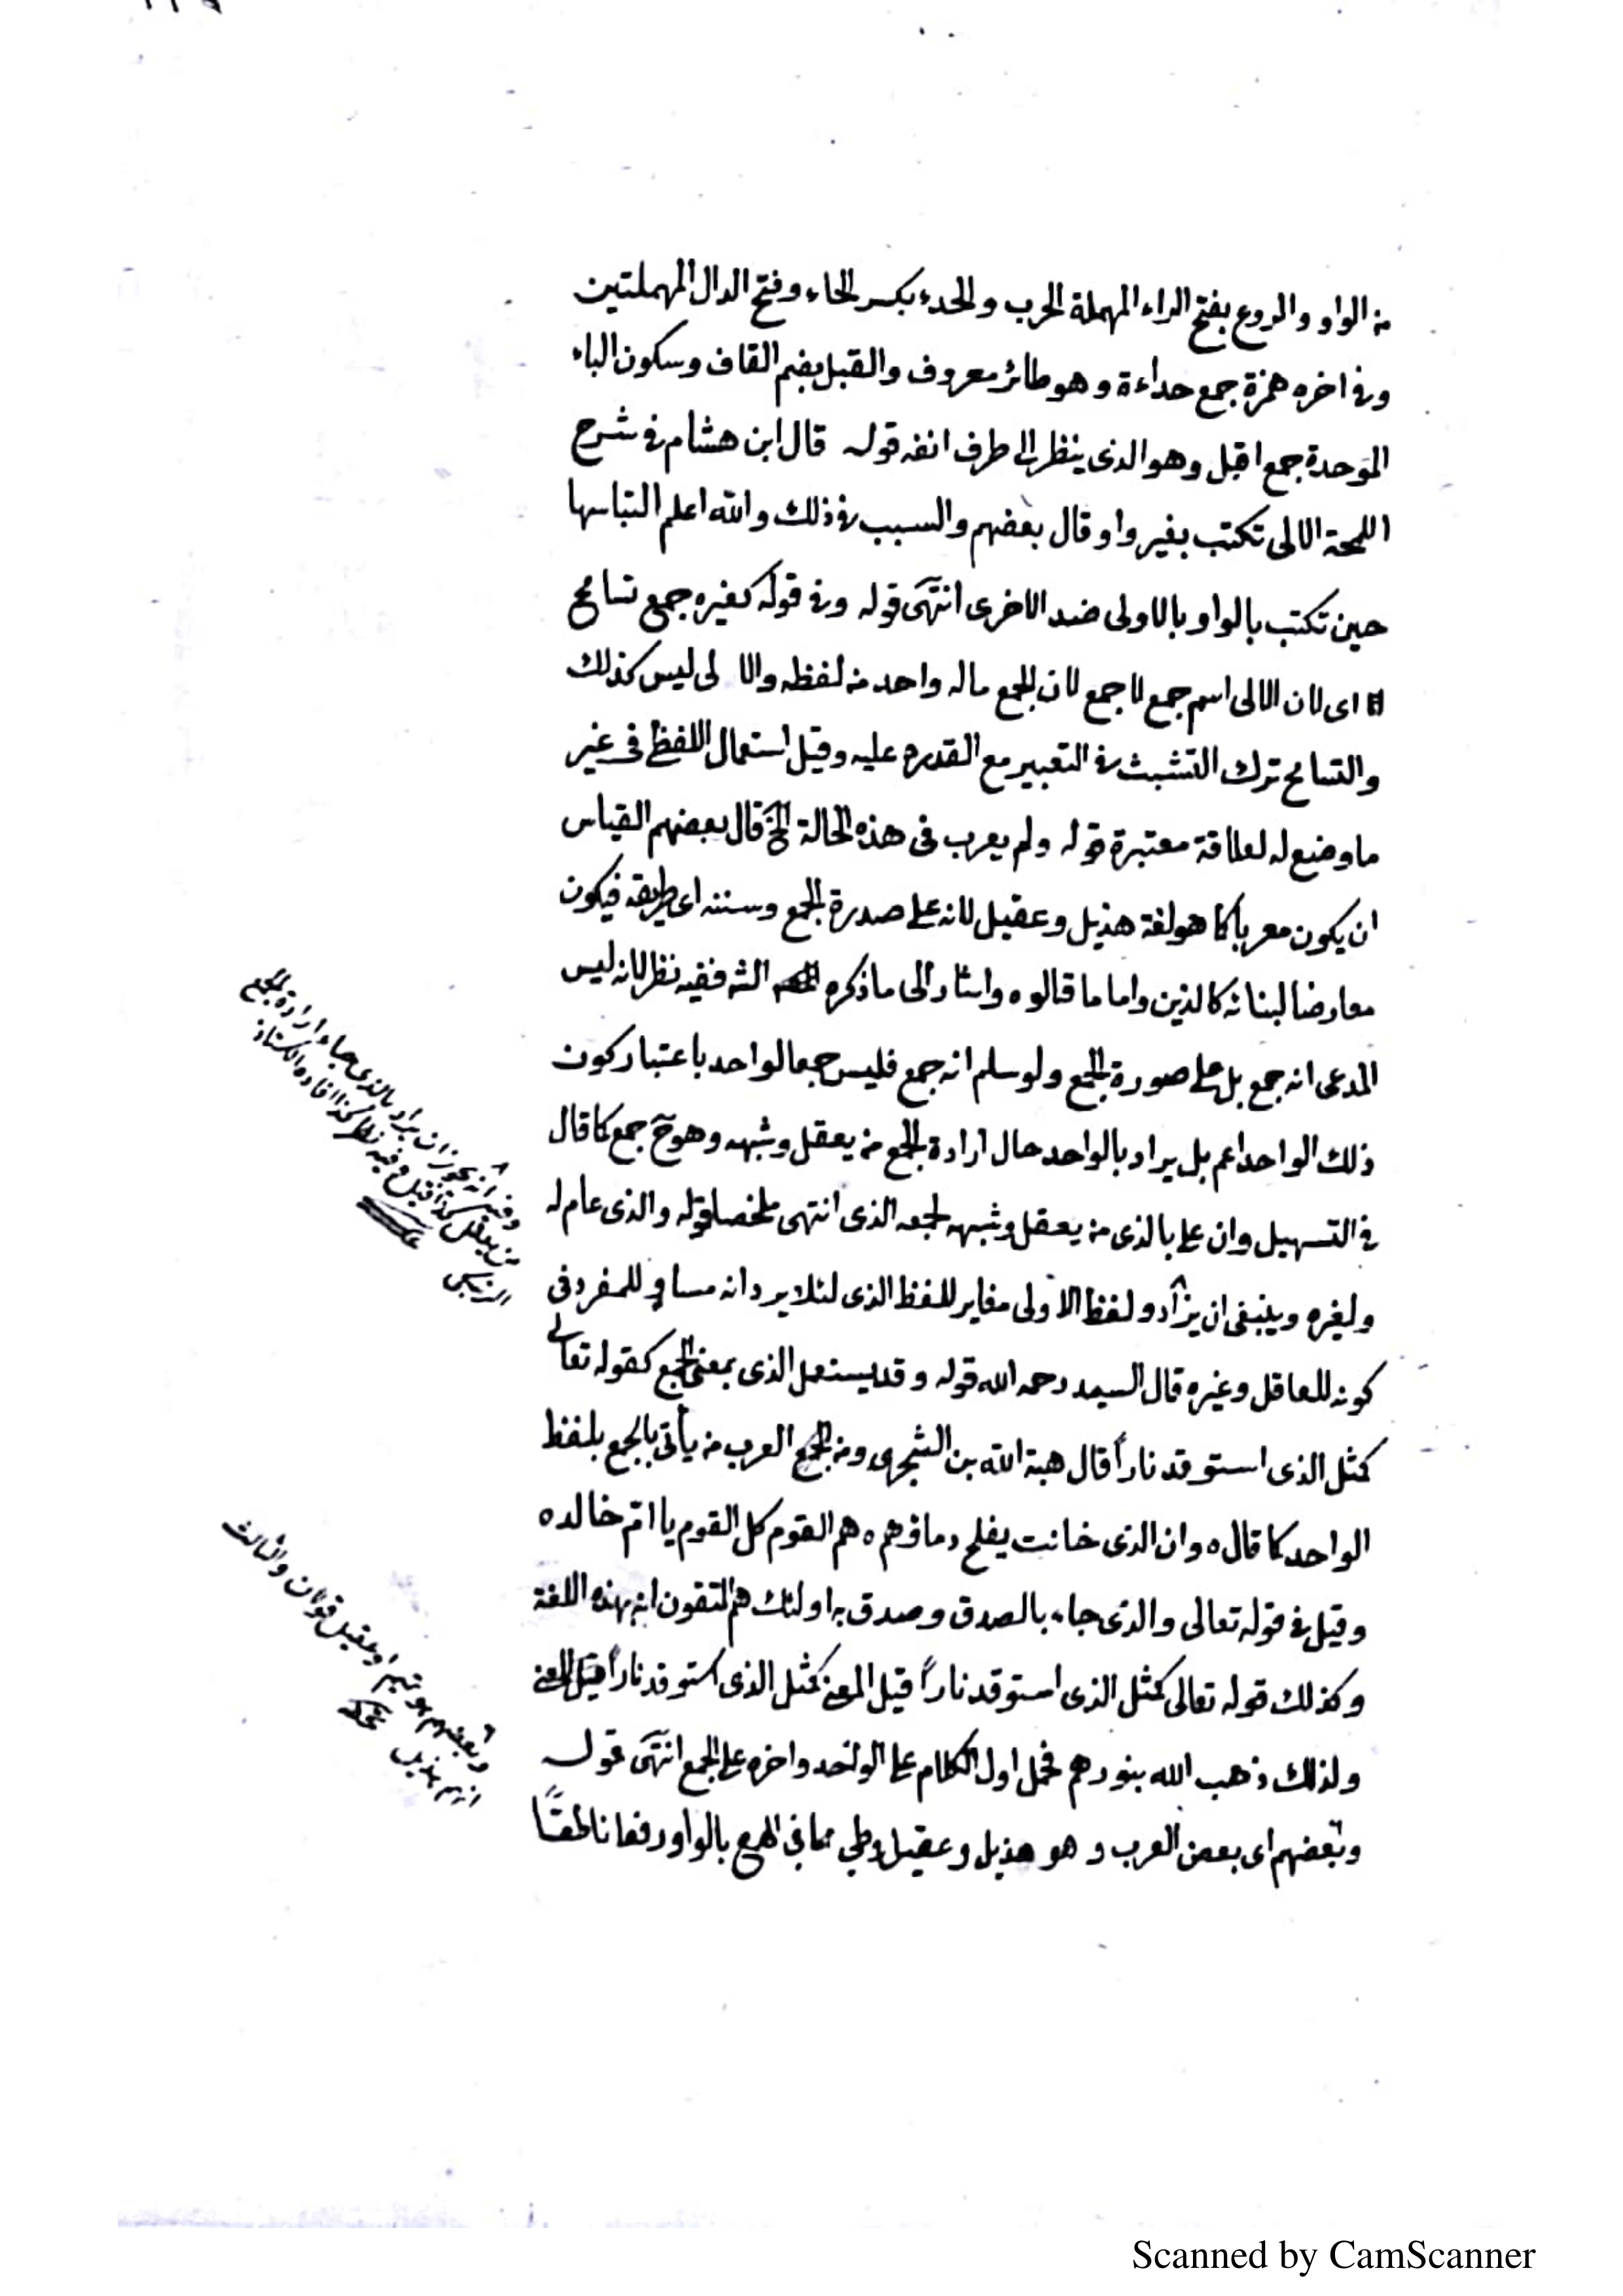 من الواو والروع بفتح الراء المهملة الحرب والحدء بكسر الحاء وفتح الدال المهملتين
وفى اخره همزة جمع حداءة وهو طائر معروف والقبل بضم القاف وسكون الباء
الموحدة جمع اقبل وهو الذى ينظر الى طرف انفه قوله قال ابن هشام فى شرح
اللمحة الالى تكتب بغير واو قال بعضهم والسبب فى ذلك والله اعلم التباسها
حين تكتب بالواو بالاولى ضد الاخرى انتهى قوله وفى قوله كغيره جمع تسامح
اى لان الالى اسم جمع لا جمع لان الجمع ماله واحد من لفظه والالى ليس كذلك
والتسامح ترك التشبث فى التعبير مع القدرة عليه وقيل استعمال اللفظ فى غير
ما وضع له لعلاقة معتبرة قوله ولم يعرب فى هذه الحالة الخ قال بعضهم القياس
ان يكون معربا كما هو لغة هذيل وعقيل لانه على صدرة الجمع وسننه اى طريقه فيكون
معارضا لبنائه كالذين واما ما قالوه واشار الى ما ذكره الشه ففيه نظر لانه ليس
المدعى انه جمع بل على صورة الجمع ولو سلم انه جمع فليس جمعا لواحد باعتبار كون
ذلك الواحد اعم بل يراد بالواحد حال ارادة الجمع من يعقل وشبهه وهو ح جمع كما قال
فى التسهيل وان على بالذى من يعقل وشبهه لجمعه الذى انتهى ملخصا قوله والذى عام له
ولغيره وينبغى ان يزاد ولفظ الاولى مغاير للفظ الذى لئلا يرد انه مساو للمفرد فى
كونه للعاقل وغيره قال السيد رحمه الله قوله وقد يستعمل الذى بمعنى الجمع كقوله تعالى
كمثل الذى استوقد ناراً قال هبة الله بن الشجرى ومن العرب من يأتى بالجمع بلفظ
الواحد كما قال ه وان الذى خانت بفلج دماؤهم ه هم القوم كل القوم يا ام خالد ه
وقيل فى قوله تعالى والذى جاء بالصدق وصدق به اولئك هم المتقون انه بهذه اللغة
وكذلك قوله تعالى كمثل الذى استوقد ناراً قيل المعنى كمثل الذى استوقد ناراً
ولذلك ذهب الله بنورهم فحمل اول الكلام على الواحد واخره على الجمع انتهى قوله
وبعضهم اى بعض العرب وهو هذيل وعقيل وطى مما فى الهمع بالواو رفعا نطقاً
وفيه انه يجوز ان يراد بالذى جاء ارادة الجمع
من يعقل كذا قيل وفيه نظر كذا افاده الاستاذ
وبعضهم هو تميم او عقيل قولان والثالث
انهم هذيل
Scanned by CamScanner